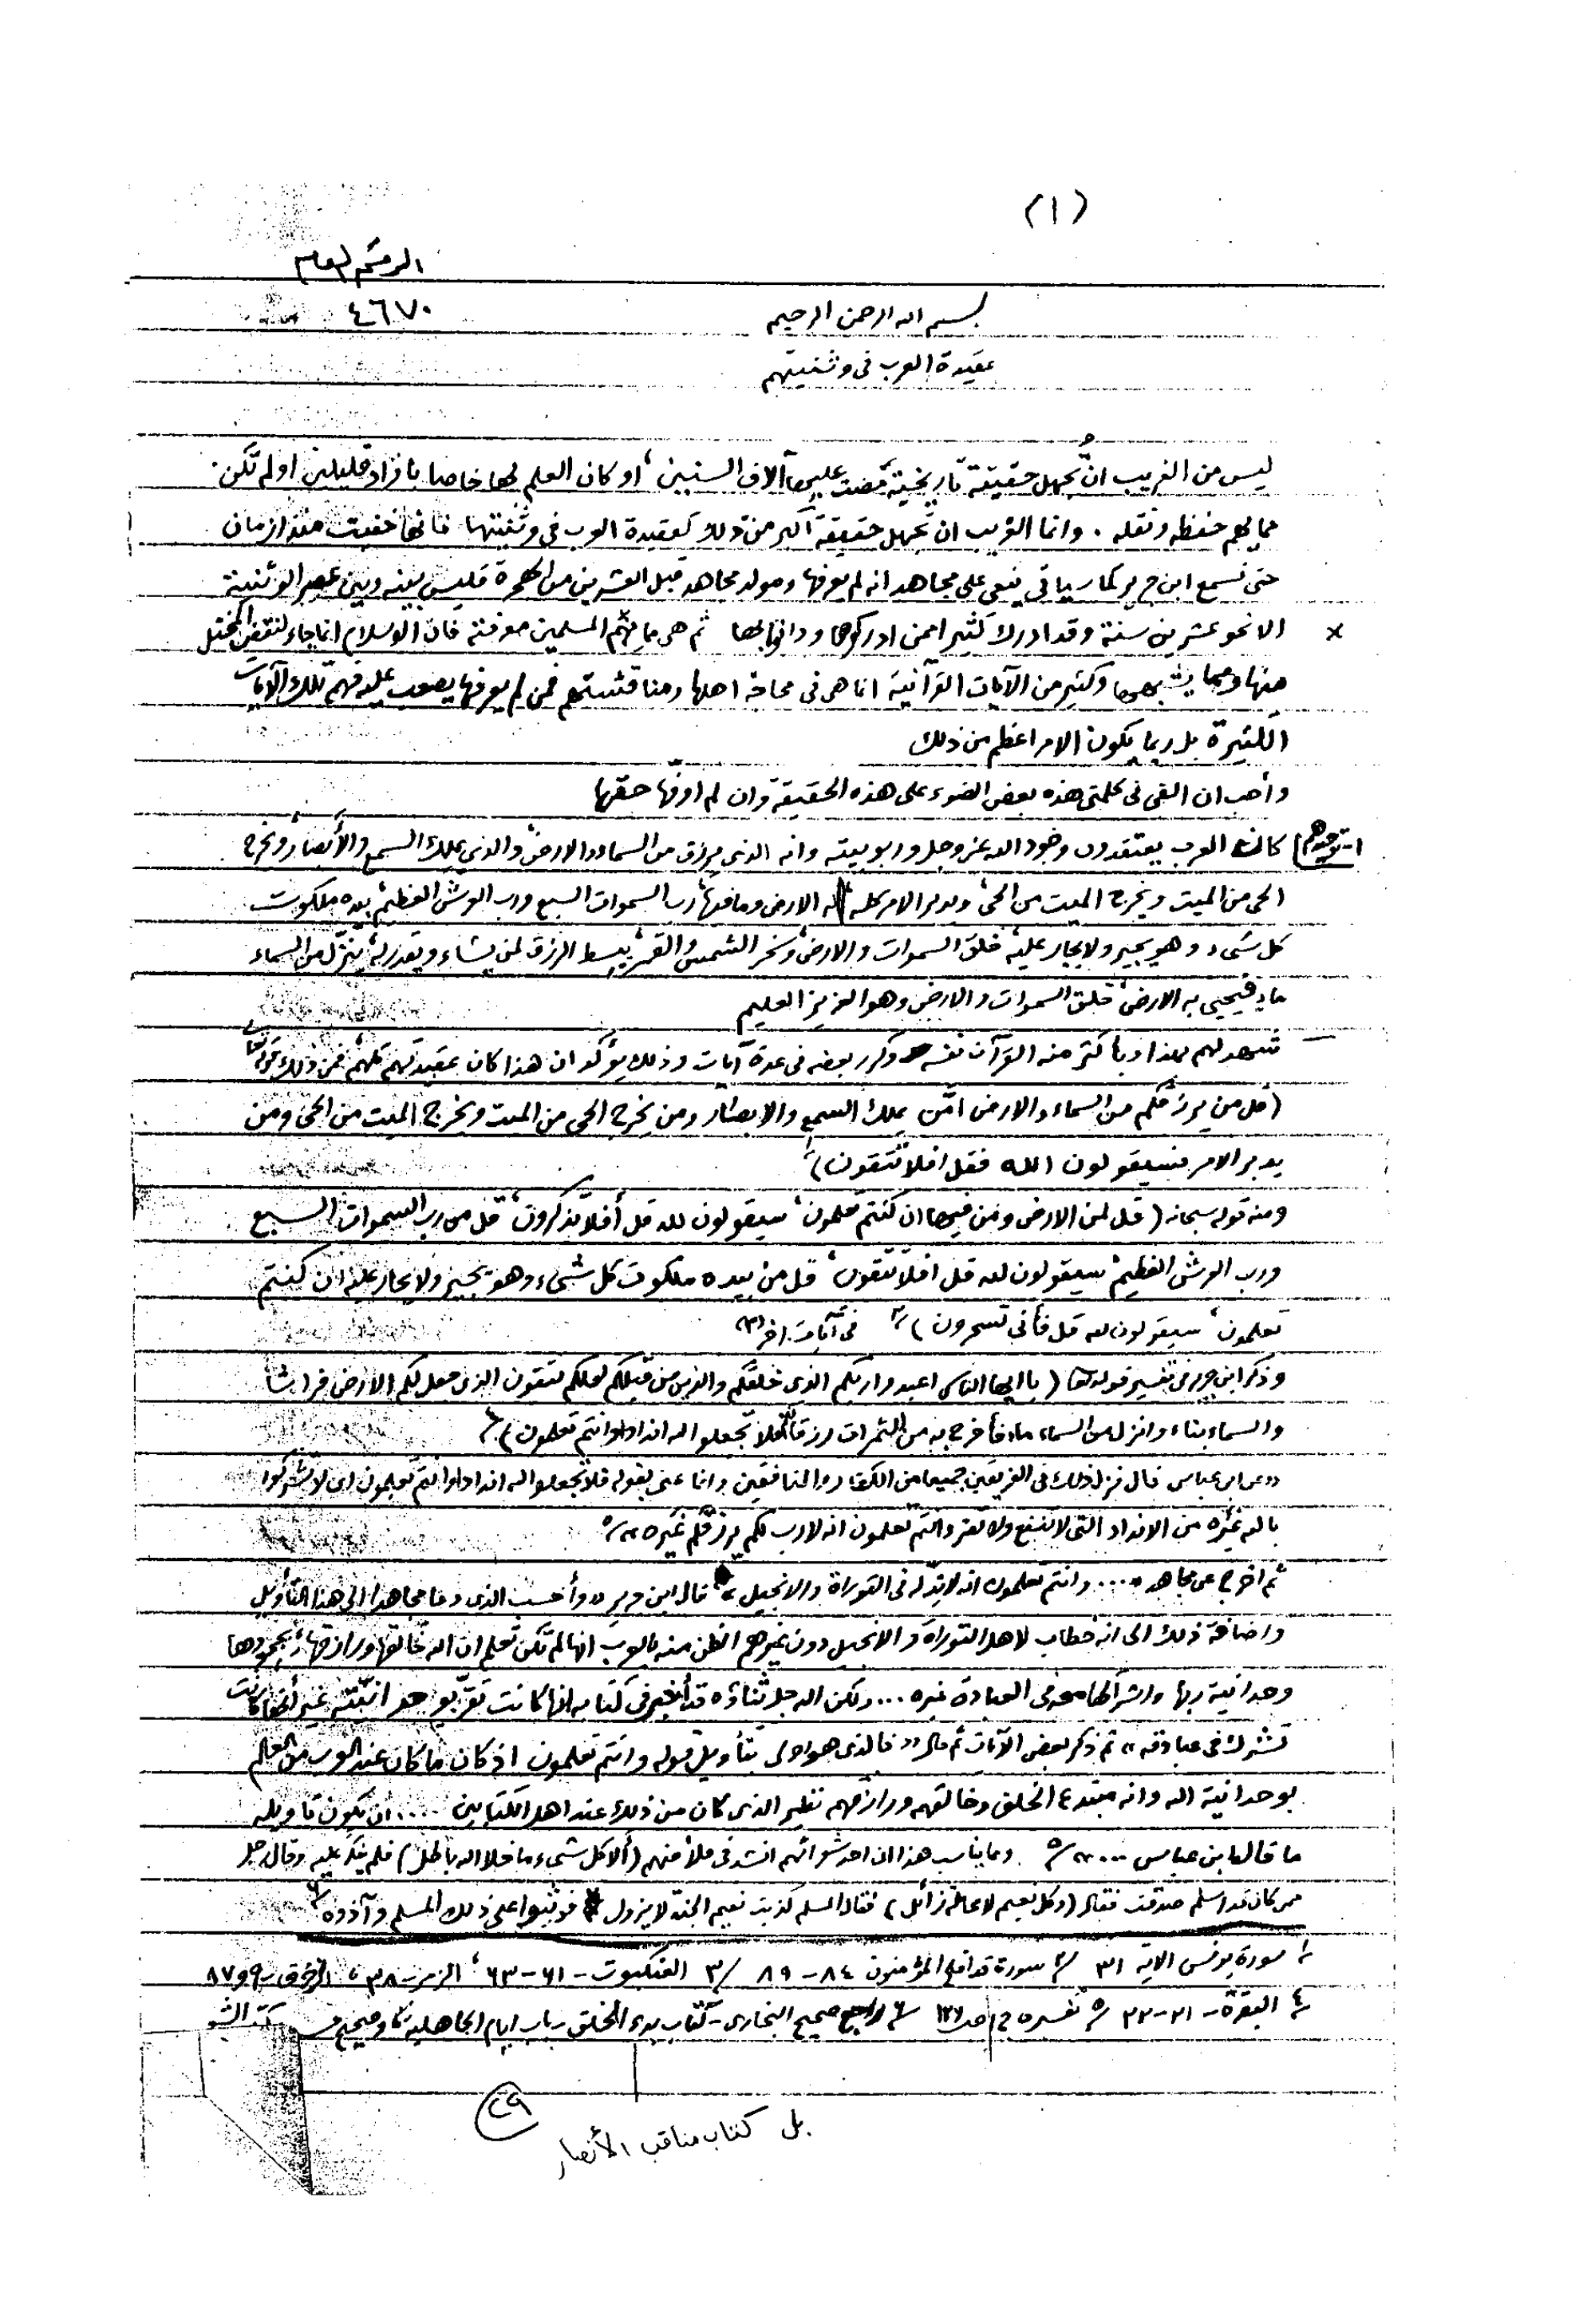 (١)
الرقم العام
٤٦٧٠
بسم الله الرحمن الرحيم
عقيدة العرب في وثنيتهم
ليس من الغريب ان تُجهل حقيقة تاريخية مضت عليها آلاف السنين، او كان العلم بها خاصا بافراد قليلين او لم تكن
مما يهم حفظه ونقله . وانما الغريب ان تجهل حقيقة اكبر من ذلك كعقيدة العرب في وثنيتها فانها خفيت منذ ازمان
حتى نسمع ابن جرير كما سيأتي ينعى على مجاهد انه لم يعرفها ومولد مجاهد قبل العشرين من الهجرة فليس بينه وبين عصر الوثنية
× الا نحو عشرين سنة وقد ادرك كثيرا ممن ادركوها ودانوا بها ثم هي مما يهم المسلمين معرفته فان الاسلام انما جاء لنقض المختل
منها وكثير من الآيات القرآنية انما هي في محاجة اهلها ومناقشتهم فمن لم يعرفها يصعب عليه فهم تلك الآيات
الكثيرة بل ربما يكون الامر اعظم من ذلك
وأحب ان القي في كلمتي هذه بعض الضوء على هذه الحقيقة وان لم اوفها حقها
١- توحيدهم) كانت العرب يعتقدون وجود الله عز وجل وربوبيته وانه الذي يرزق من السماء والارض، والذي يملك السمع والأبصار، ويخرج
الحي من الميت ويخرج الميت من الحي، ويدبر الامر كله، له الارض وما فيها، رب السموات السبع ورب العرش العظيم، بيده ملكوت
كل شيء وهو يجير ولا يجار عليه، خلق السموات والارض، وسخر الشمس والقمر، يبسط الرزق لمن يشاء ويقدر له، ينزل من السماء
ماء فيحيي به الارض، خلق السموات والارض وهو العزيز العليم
— شهد لهم بهذا وباكثر منه القرآن نفسه وكرر بعضه في عدة آيات وذلك يؤكد ان هذا كان عقيدتهم كلهم، فمن ذلك قوله تعالى
(قل من يرزقكم من السماء والارض امّن يملك السمع والابصار ومن يخرج الحي من الميت ويخرج الميت من الحي ومن
يدبر الامر فسيقولون الله فقل افلا تتقون)١
ومنه قوله سبحانه (قل لمن الارض ومن فيها ان كنتم تعلمون، سيقولون لله قل أفلا تذكرون، قل من رب السموات السبع
ورب العرش العظيم، سيقولون لله قل افلا تتقون، قل من بيده ملكوت كل شيء وهو يجير ولا يجار عليه ان كنتم
تعلمون، سيقولون لله قل فأنى تسحرون)٢ في آيات اخر (٣)
وذكر ابن جرير في تفسير قوله تعالى (يا ايها الناس اعبدوا ربكم الذي خلقكم والذين من قبلكم لعلكم تتقون الذي جعل لكم الارض فراشا
والسماء بناء وانزل من السماء ماء فأخرج به من الثمرات رزقا لكم فلا تجعلوا لله اندادا وانتم تعلمون)٤
«عن ابن عباس قال نزل ذلك في الفريقين جميعا من الكفار والمنافقين وانما عنى بقوله فلا تجعلوا لله اندادا وانتم تعلمون اي لا تشركوا
بالله غيره من الانداد التي لا تنفع ولا تضر وانتم تعلمون انه لا رب لكم يرزقكم غيره»٥
ثم اخرج عن مجاهد «.... وانتم تعلمون انه لا ند له في التوراة والانجيل» قال ابن جرير «وأحسب الذي دعا مجاهدا الى هذا التأويل
واضافة ذلك الى انه خطاب لاهل التوراة والانجيل دون غيرهم الظن منه بالعرب انها لم تكن تعلم ان الله خالقها ورازقها، بجحودها
وحدانية ربها واشراكها معه في العبادة غيره ... ولكن الله جل ثناؤه قد أخبر في كتابه انها كانت تقر بوحدانيته غير أنها كانت
تشرك في عبادته» ثم ذكر بعض الآيات ثم قال «فالذي هو اولى بتأويل قوله وانتم تعلمون اذ كان ما كان عند العرب من العلم
بوحدانية الله وانه مبتدع الخلق وخالقهم ورازقهم نظير الذي كان من ذلك عند اهل الكتابين .... ان يكون تأويله
ما قاله ابن عباس ....»٥ ومما يناسب هذا ان احد شعرائهم انشد في ملأ منهم (ألا كل شيء ما خلا الله باطل) فلم ينكر عليه وقال رجل
ممن كان قد اسلم صدقت فقال (وكل نعيم لا محالة زائل) فقال المسلم كذبت نعيم الجنة لا يزول فوثبوا على ذلك المسلم وآذوه٦
١ سورة يونس الاية ٣١ ٢ سورة قد افلح المؤمنون ٨٤-٨٩ ٣ العنكبوت-٦١-٦٣، الزمر-٣٨، الزخرف-٩ و٨٧
٤ البقرة-٢١-٢٢ ٥ تفسيره ج١ ص١٢٦ ٦ راجع صحيح البخاري-كتاب بدء الخلق-باب ايام الجاهلية، وصحيح
بل كتاب مناقب الأنصار
(٢٩)